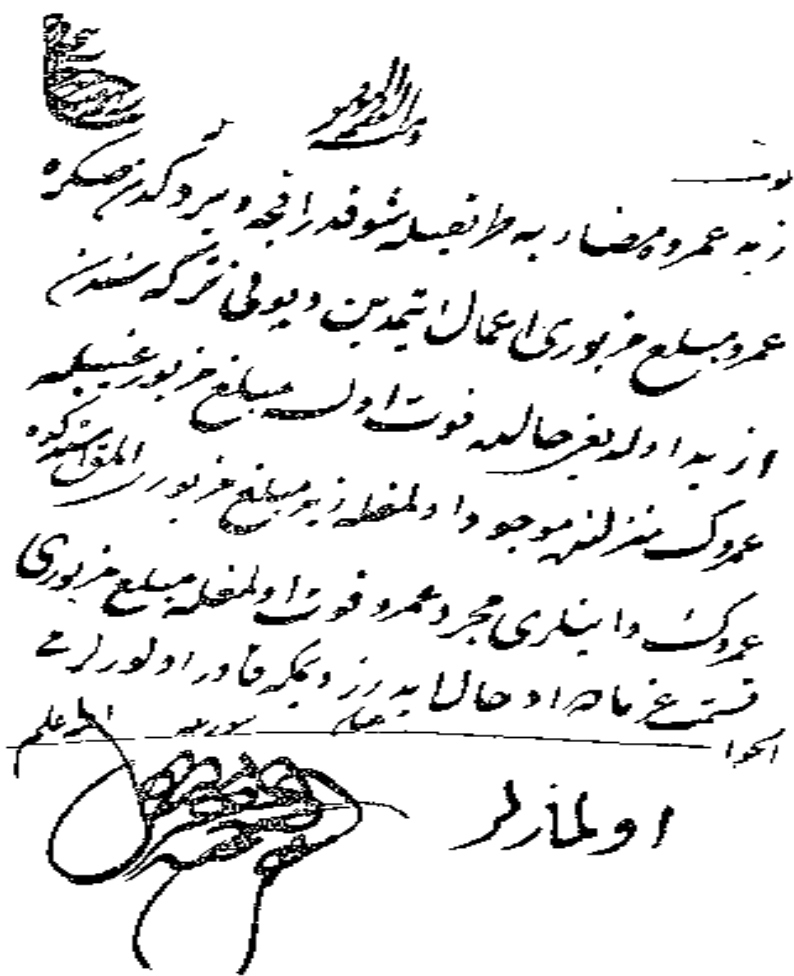 زيد عمروه مضاربه طريقيله شو قدر اقچه ويردكدن صكره
عمرو مبلغ مزبورى اعمال ايتمدين ديونى تركه سندن
ازيد اولديغى حالده فوت اولسه مبلغ مزبور عينيله
عمروك منزلنده موجود اولمغله زيد مبلغ مزبورى المق استدكده
عمروك داينلرى مجرد عمرو فوت اولمغله مبلغ مزبورى
قسمت غرمايه ادخال ايدرز ديمكه قادر اولورلرمى
الجواب
الله اعلم
اولمازلر